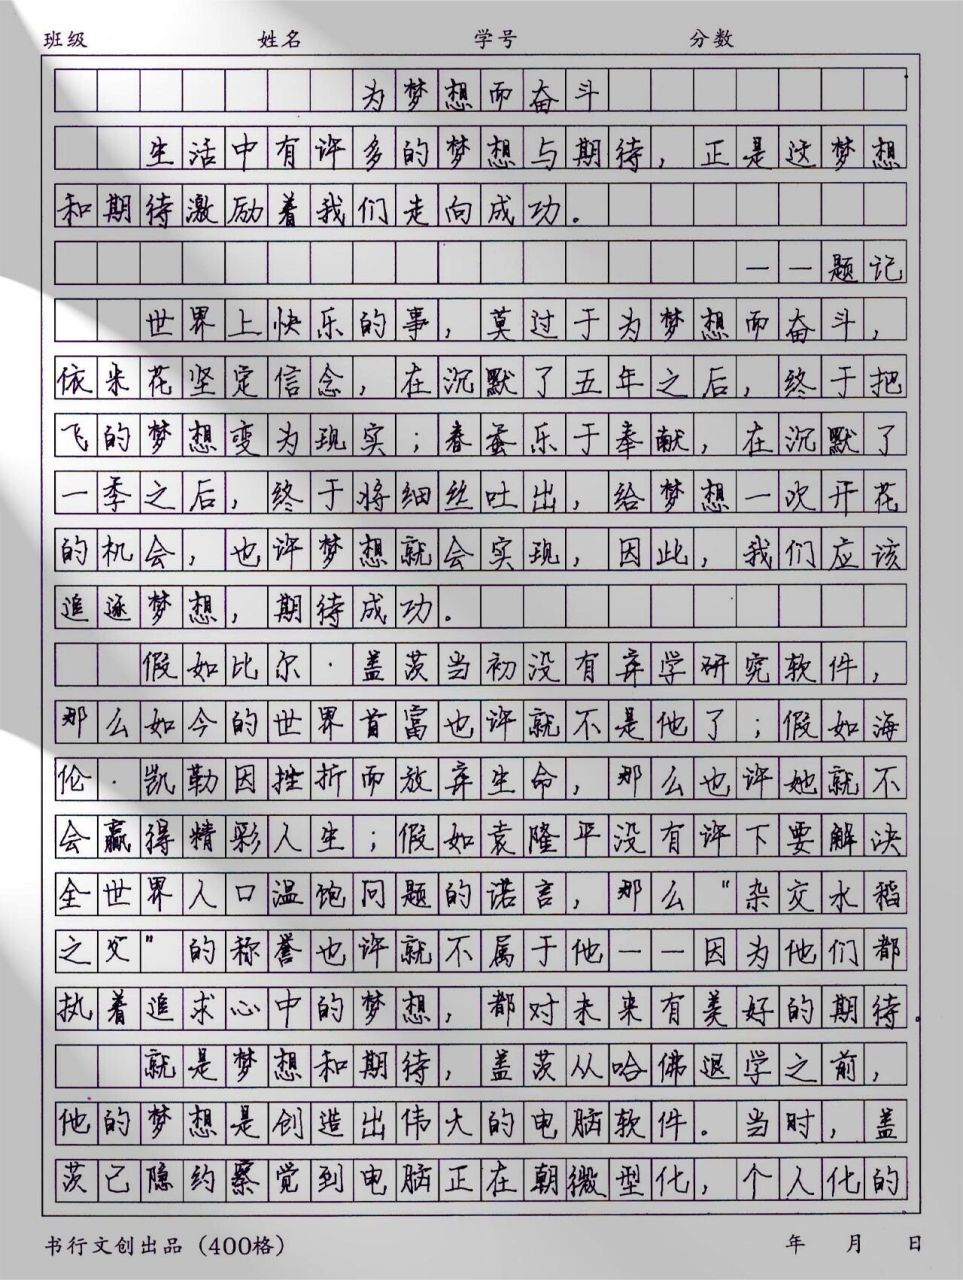 班级 姓名 学号 分数
为梦想而奋斗
生活中有许多的梦想与期待，正是这梦想
和期待激励着我们走向成功。
——题记
世界上快乐的事，莫过于为梦想而奋斗，
依米花坚定信念，在沉默了五年之后，终于把
飞的梦想变为现实；春蚕乐于奉献，在沉默了
一季之后，终于将细丝吐出，给梦想一次开花
的机会，也许梦想就会实现，因此，我们应该
追逐梦想，期待成功。
假如比尔·盖茨当初没有弃学研究软件，
那么如今的世界首富也许就不是他了；假如海
伦·凯勒因挫折而放弃生命，那么也许她就不
会赢得精彩人生；假如袁隆平没有许下要解决
全世界人口温饱问题的诺言，那么"杂交水稻
之父"的称誉也许就不属于他——因为他们都
执着追求心中的梦想，都对未来有美好的期待。
就是梦想和期待，盖茨从哈佛退学之前，
他的梦想是创造出伟大的电脑软件。当时，盖
茨已隐约察觉到电脑正在朝微型化，个人化的
书行文创出品（400格） 年 月 日